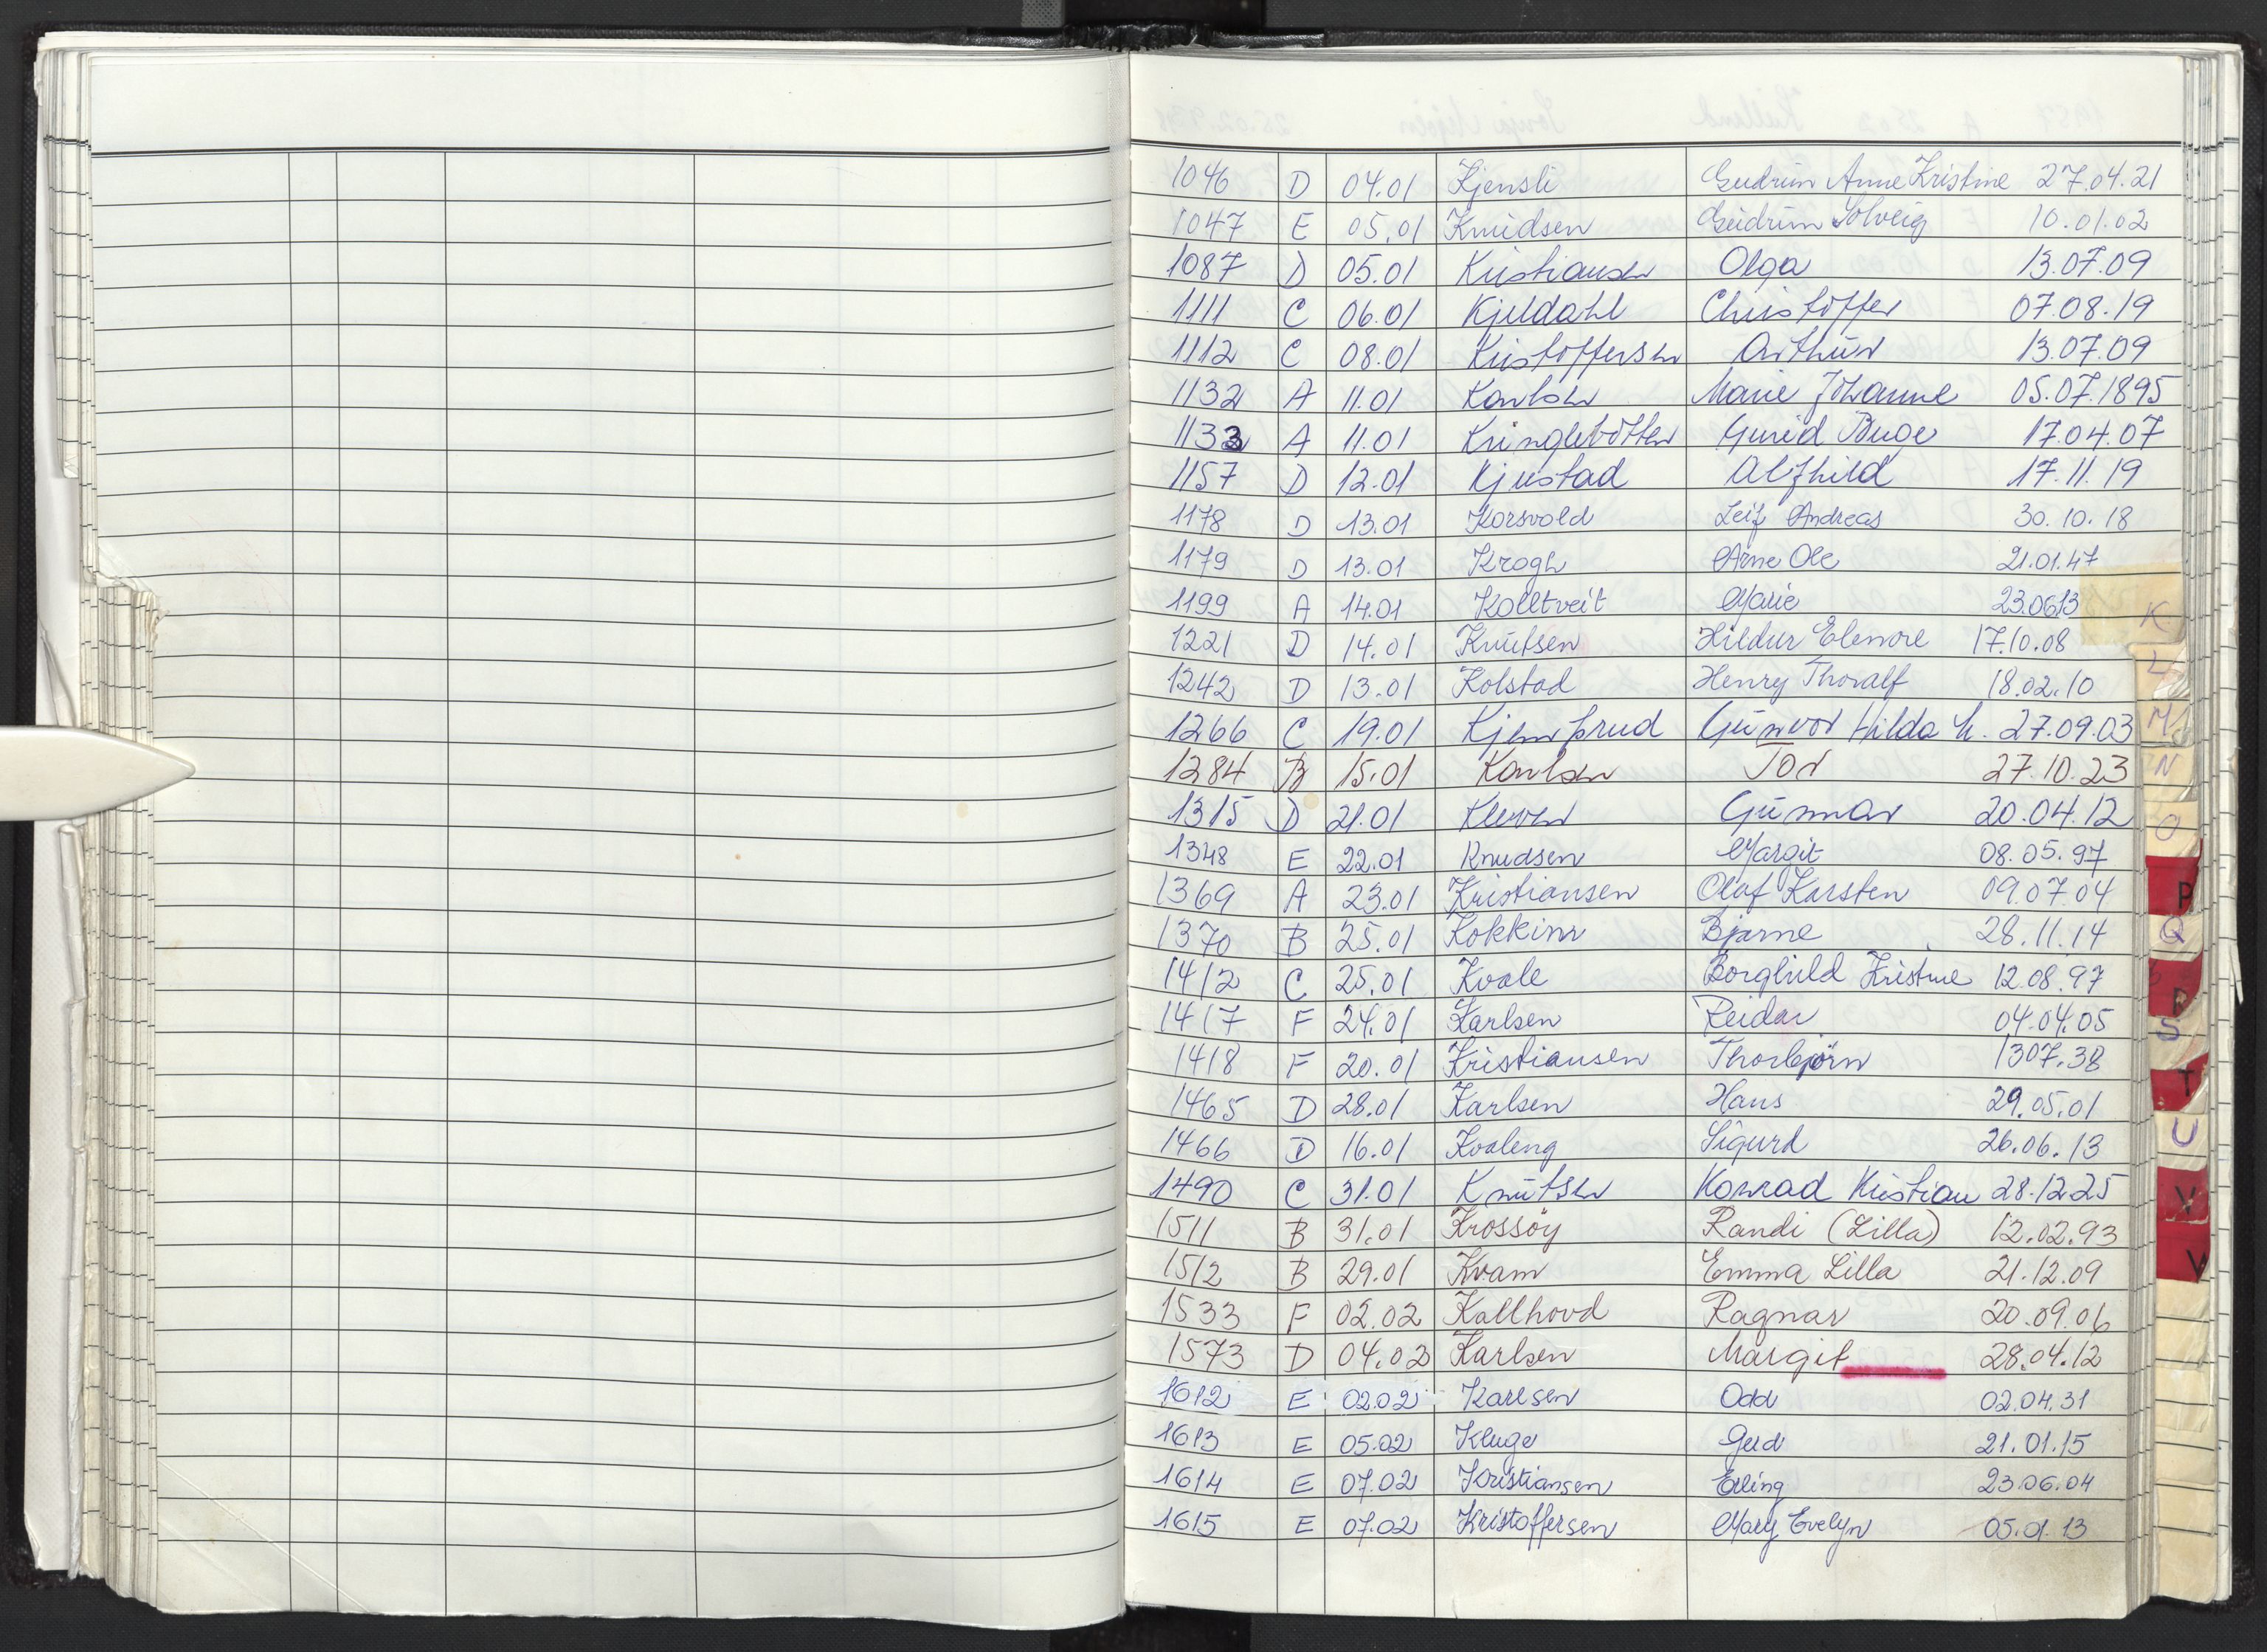 1046 D 04.01 Kjensli Gudrun Anne Kristine 27.04.21
1047 E 05.01 Knudsen Gudrun Solveig 10.01.02
1087 D 05.01 Kristiansen Olga 13.07.09
1111 C 06.01 Kjeldahl Christoffer 07.08.19
1112 C 08.01 Kristoffersen Arthur 13.07.09
1132 A 11.01 Karlsen Marie Johanne 05.07.1895
1133 A 11.01 Kringlebotten Gurid Buge 17.04.07
1157 D 12.01 Kjustad Alfhild 17.11.19
1178 D 13.01 Korsvold Leif Andreas 30.10.18
1179 D 13.01 Krogh Arne Ole 21.01.47
1199 A 14.01 Kolltveit Marie 23.0613
1221 D 14.01 Knutsen Hildur Elenore 17.10.08
1242 D 13.01 Kolstad Henry Thoralf 18.02.10
1266 C 19.01 Kjemprud Gunvor Hilda h. 27.09.03
1284 B 15.01 Karlsen Tor 27.10.23
1315 D 21.01 Kleven Gunnar 20.04.12
1348 E 22.01 Knudsen Margit 08.05.97
1369 A 23.01 Kristiansen Olaf Karsten 09.07.04
1370 B 25.01 Kokkinn Bjarne 28.11.14
1412 C 25.01 Kvale Borghild Kristine 12.08.97
1417 F 24.01 Karlsen Reidar 04.04.05
1418 F 20.01 Kristiansen Thorbjørn 1307.38
1465 D 28.01 Karlsen Hans 29.05.01
1466 D 16.01 Kvaleng Sigurd 26.06.13
1490 C 31.01 Knutsen Konrad Kristian 28.12.25
1511 B 31.01 Krossöy Randi (Lilla) 12.02.93
1512 B 29.01 Kvam Emma Lilla 21.12.09
1533 F 02.02 Kallhovd Ragnar 20.09.06
1573 D 04.02 Karlsen Margit 28.04.12
1612 E 02.02 Karlsen Odd 02.04.31
1613 E 05.02 Kluge Gerd 21.01.15
1614 E 07.02 Kristiansen Erling 23.06.04
1615 E 07.02 Kristoffersen Mary Evelyn 05.01.13
K
L
M
N
O
P
Q
R
S
T
U
V